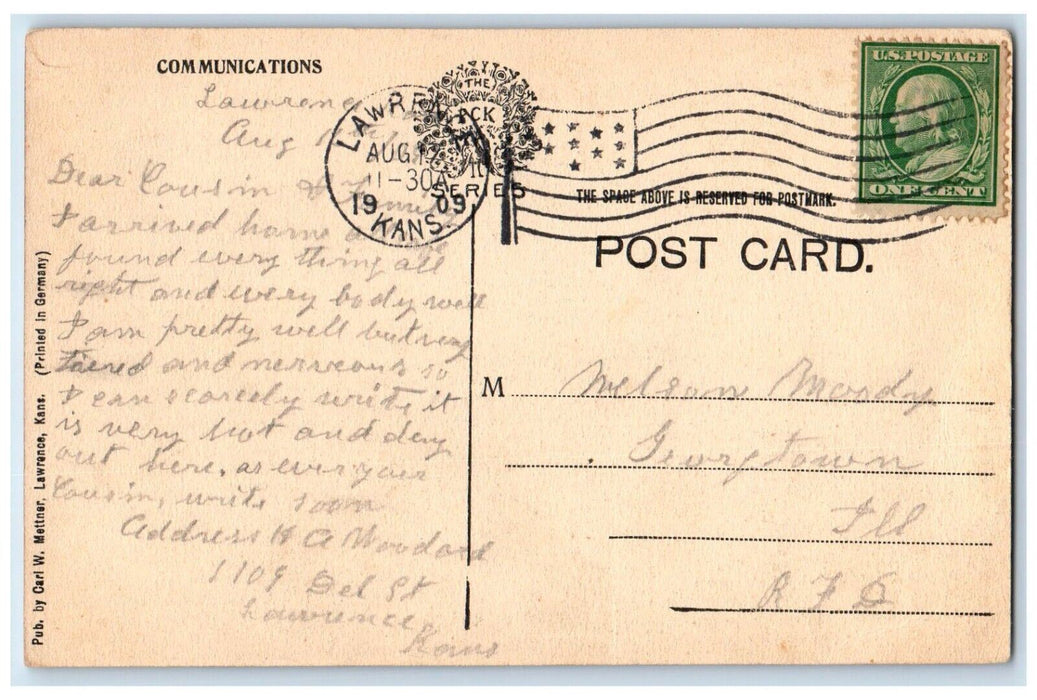 COMMUNICATIONS
U.S. POSTAGE
ONE CENT
THE
SERIES
LAWRENCE
AUG
11-30A
1909
KANS.
THE SPACE ABOVE IS RESERVED FOR POSTMARK.
POST CARD.
Lawrence
Aug
Dear Cousin & Family
I arrived home
found every thing all
right and every body well
I am pretty well but very
tiered and nerveous so
I can scarcely write it
is very hot and dry
out here, as ever your
Cousin, write soon
Address H A Woodard
1109 Del St
Lawrence
Kans
M Nelson Moody
Georgtown
Ill
R F D
Pub. by Carl W. Mettner, Lawrence, Kans. (Printed in Germany)